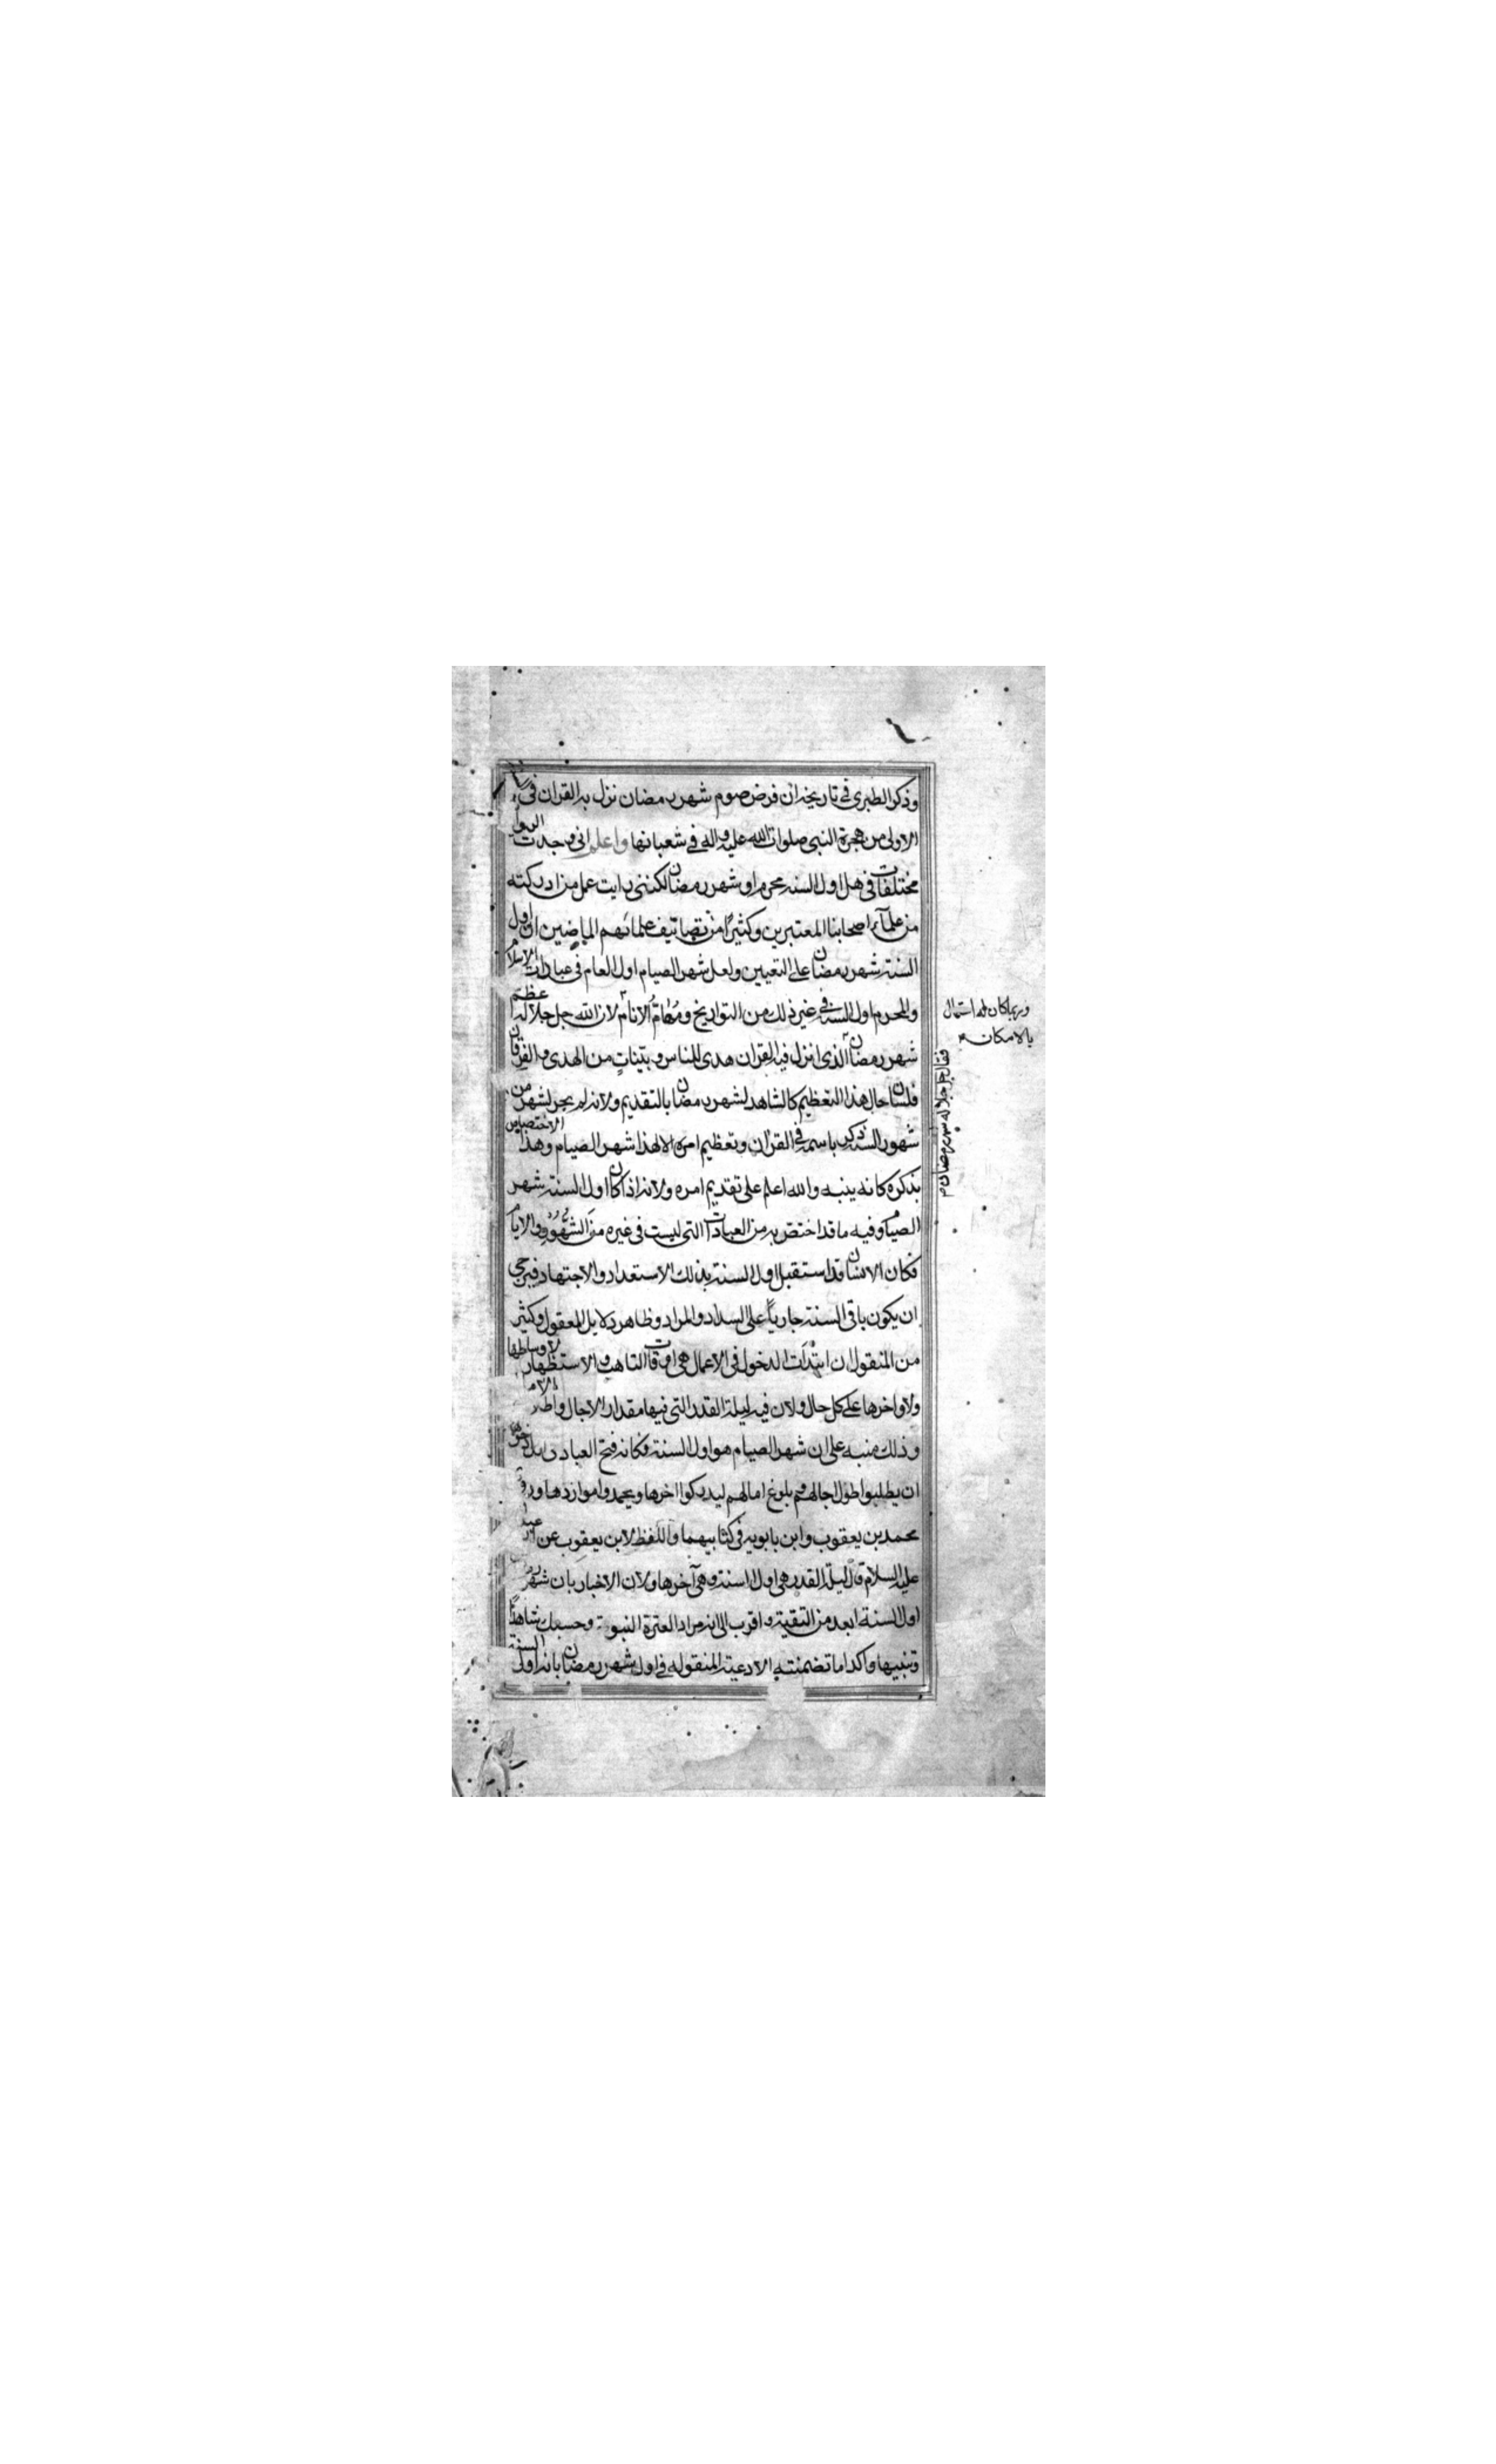 وذكر الطبرى فى تاريخه ان فرض صوم شهر رمضان نزل به القران فى
الاولى من هجرة النبى صلوات الله عليه واله فى شعبانها واعلم انى وجدت الروا
مختلفات فى هل اول السنه محرم او شهر رمضان لكننى رايت عمل من ادركته
من علمآء اصحابنا المعتبرين وكثيرًا من تصانيف علمائهم الماضين ان اول
السنة شهر رمضان على التعيين ولعل شهر الصيام اول العام فى عبادات الاسلام
والمحرم اول السنة فى غير ذلك من التواريخ ومهام الانام لان الله جل جلاله عظم
شهر رمضان الذى انزل فيه القران هدى للناس وبينات من الهدى والفرقان
فلسان حال هذا التعظيم كالشاهد لشهر رمضان بالتقديم ولانه لم يجر لشهر من
شهور السنة ذكر باسمه فى القران وتعظيم امره الا لهذا شهر الصيام وهذا الاختصاص
بذكره كانه ينبه والله اعلم على تقديم امره ولانه اذا كان اول السنة شهر
الصيام وفيه ما قد اختص به من العبادات التى ليست فى غيره من الشهور والايام
فكان الانسان قد استقبل اول السنة بذلك الاستعداد والاجتهاد فيرجى
ان يكون باقى السنة جارياً على السداد والمراد وظاهر دلايل المعقول وكثير
من المنقول ان ابتدآت الدخول فى الاعمال هى اوقات التاهب والاستظهار لاوساطها
ولاواخرها على كل حال ولان فيه ليلة القدر التى فيها مقدار الاجال واطلاق
وذلك منبه على ان شهر الصيام هو اول السنة فكانه فتح العباد
ان يطلبوا طول اجالهم بلوغ امالهم ليدركوا اخرها ويحمدوا مواردها
محمد بن يعقوب وابن بابويه فى كتابيهما واللفظ لابن يعقوب عن
عليه السلام قال ليلة القدر هى اول السنة وهى آخرها ولان الاخبار بان شهر
اول السنة ابعد من التقية واقرب الى انه مراد العترة النبوية وحسبك شاهداً
وتنبيها واكدا ما تضمنته الادعية المنقوله فى اول شهر رمضان بانه اول السنة
وربما كان له استمال
بالامكان
فقال جل جلاله شهر رمضان